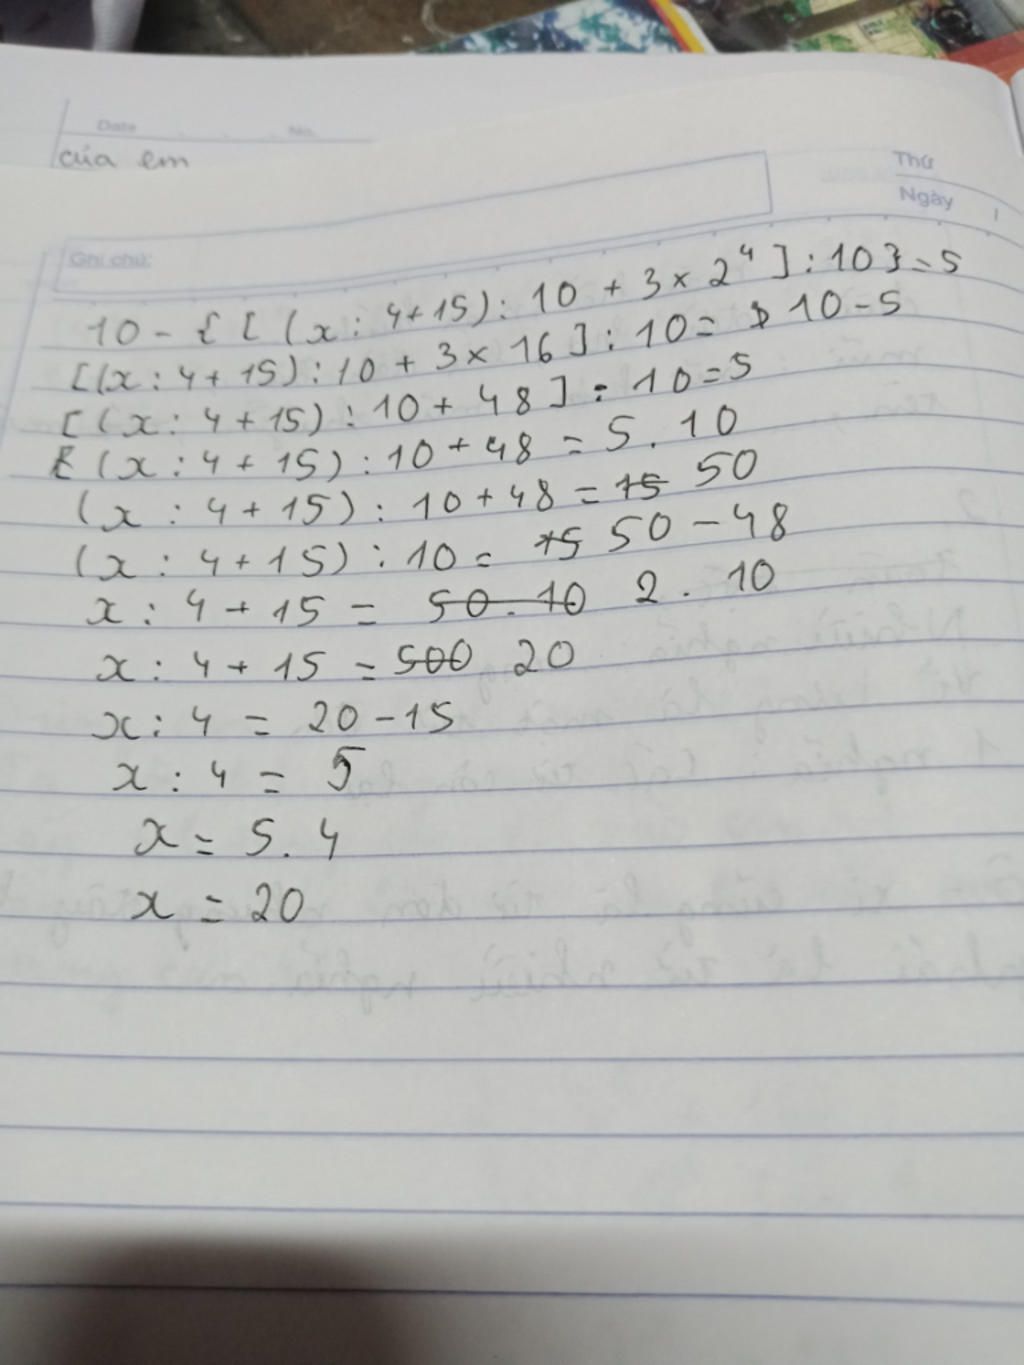 Date No.
của em
Thứ
Ngày
Ghi chú:
10 - { [ (x : 4+15) : 10 + 3 x 2⁴ ] : 10 } = 5
[(x : 4 + 15) : 10 + 3 x 16 ] : 10 = 10 - 5
[ (x : 4 + 15) : 10 + 48 ] : 10 = 5
(x : 4 + 15) : 10 + 48 = 5 . 10
(x : 4 + 15) : 10 + 48 = 15 50
(x : 4 + 15) : 10 = 15 50 - 48
x : 4 + 15 = 50 . 10 2 . 10
x : 4 + 15 = 500 20
x : 4 = 20 - 15
x : 4 = 5
x = 5 . 4
x = 20